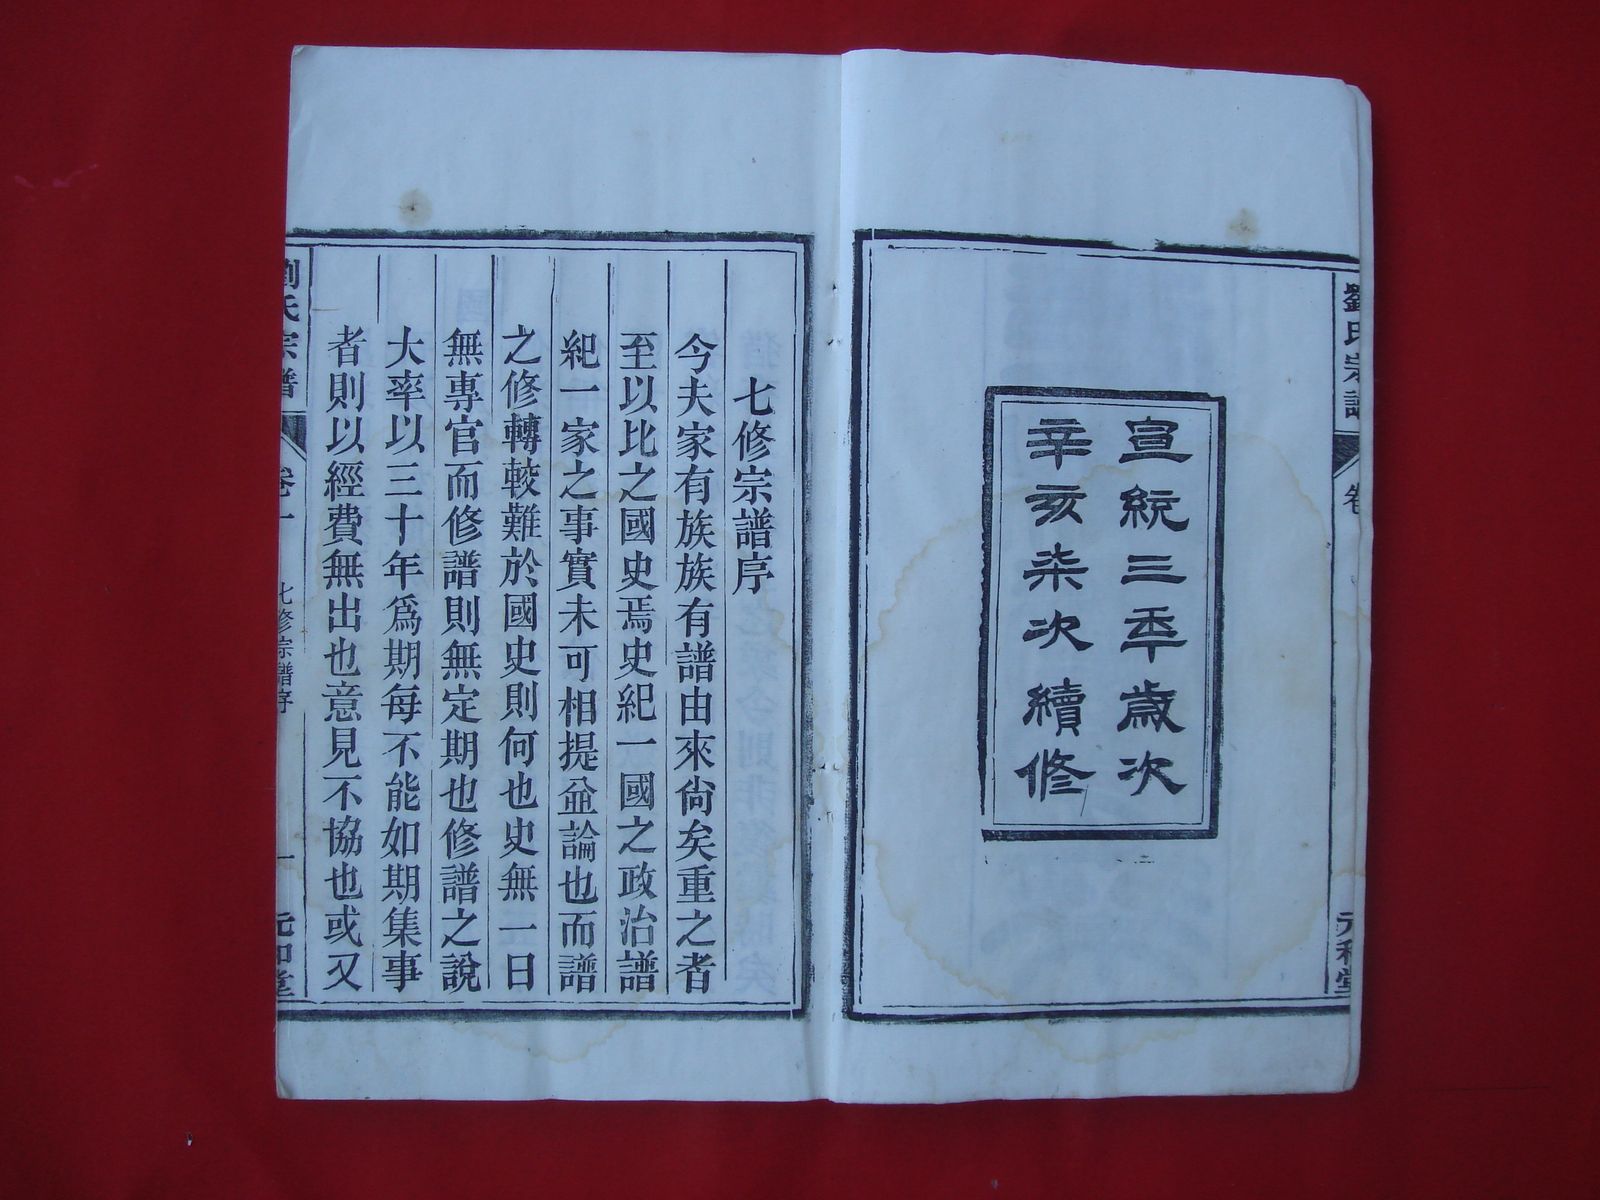 劉氏宗譜
卷
元和堂
宣統三年歲次
辛亥柒次續修
七修宗譜序
今夫家有族族有譜由來尙矣重之者
至以比之國史焉史紀一國之政治譜
紀一家之事實未可相提並論也而譜
之修轉較難於國史則何也史無一日
無專官而修譜則無定期也修譜之說
大率以三十年爲期每不能如期集事
者則以經費無出也意見不協也或又
劉氏宗譜
卷一
七修宗譜序
一
元和堂